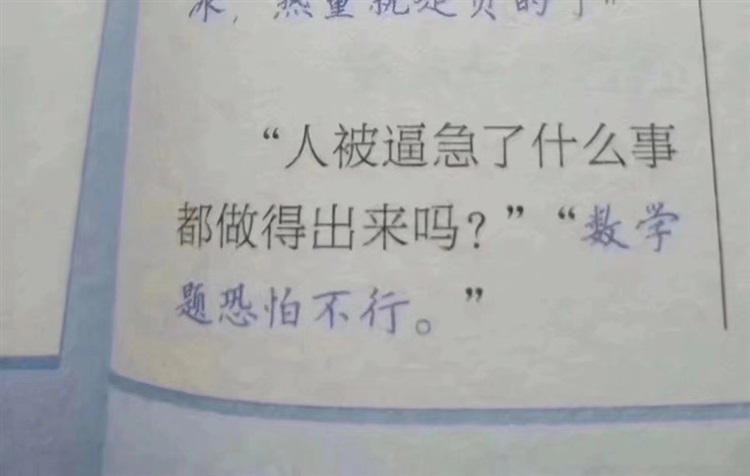 冰，热量就是负的了”
“人被逼急了什么事
都做得出来吗？”“数学
题恐怕不行。”